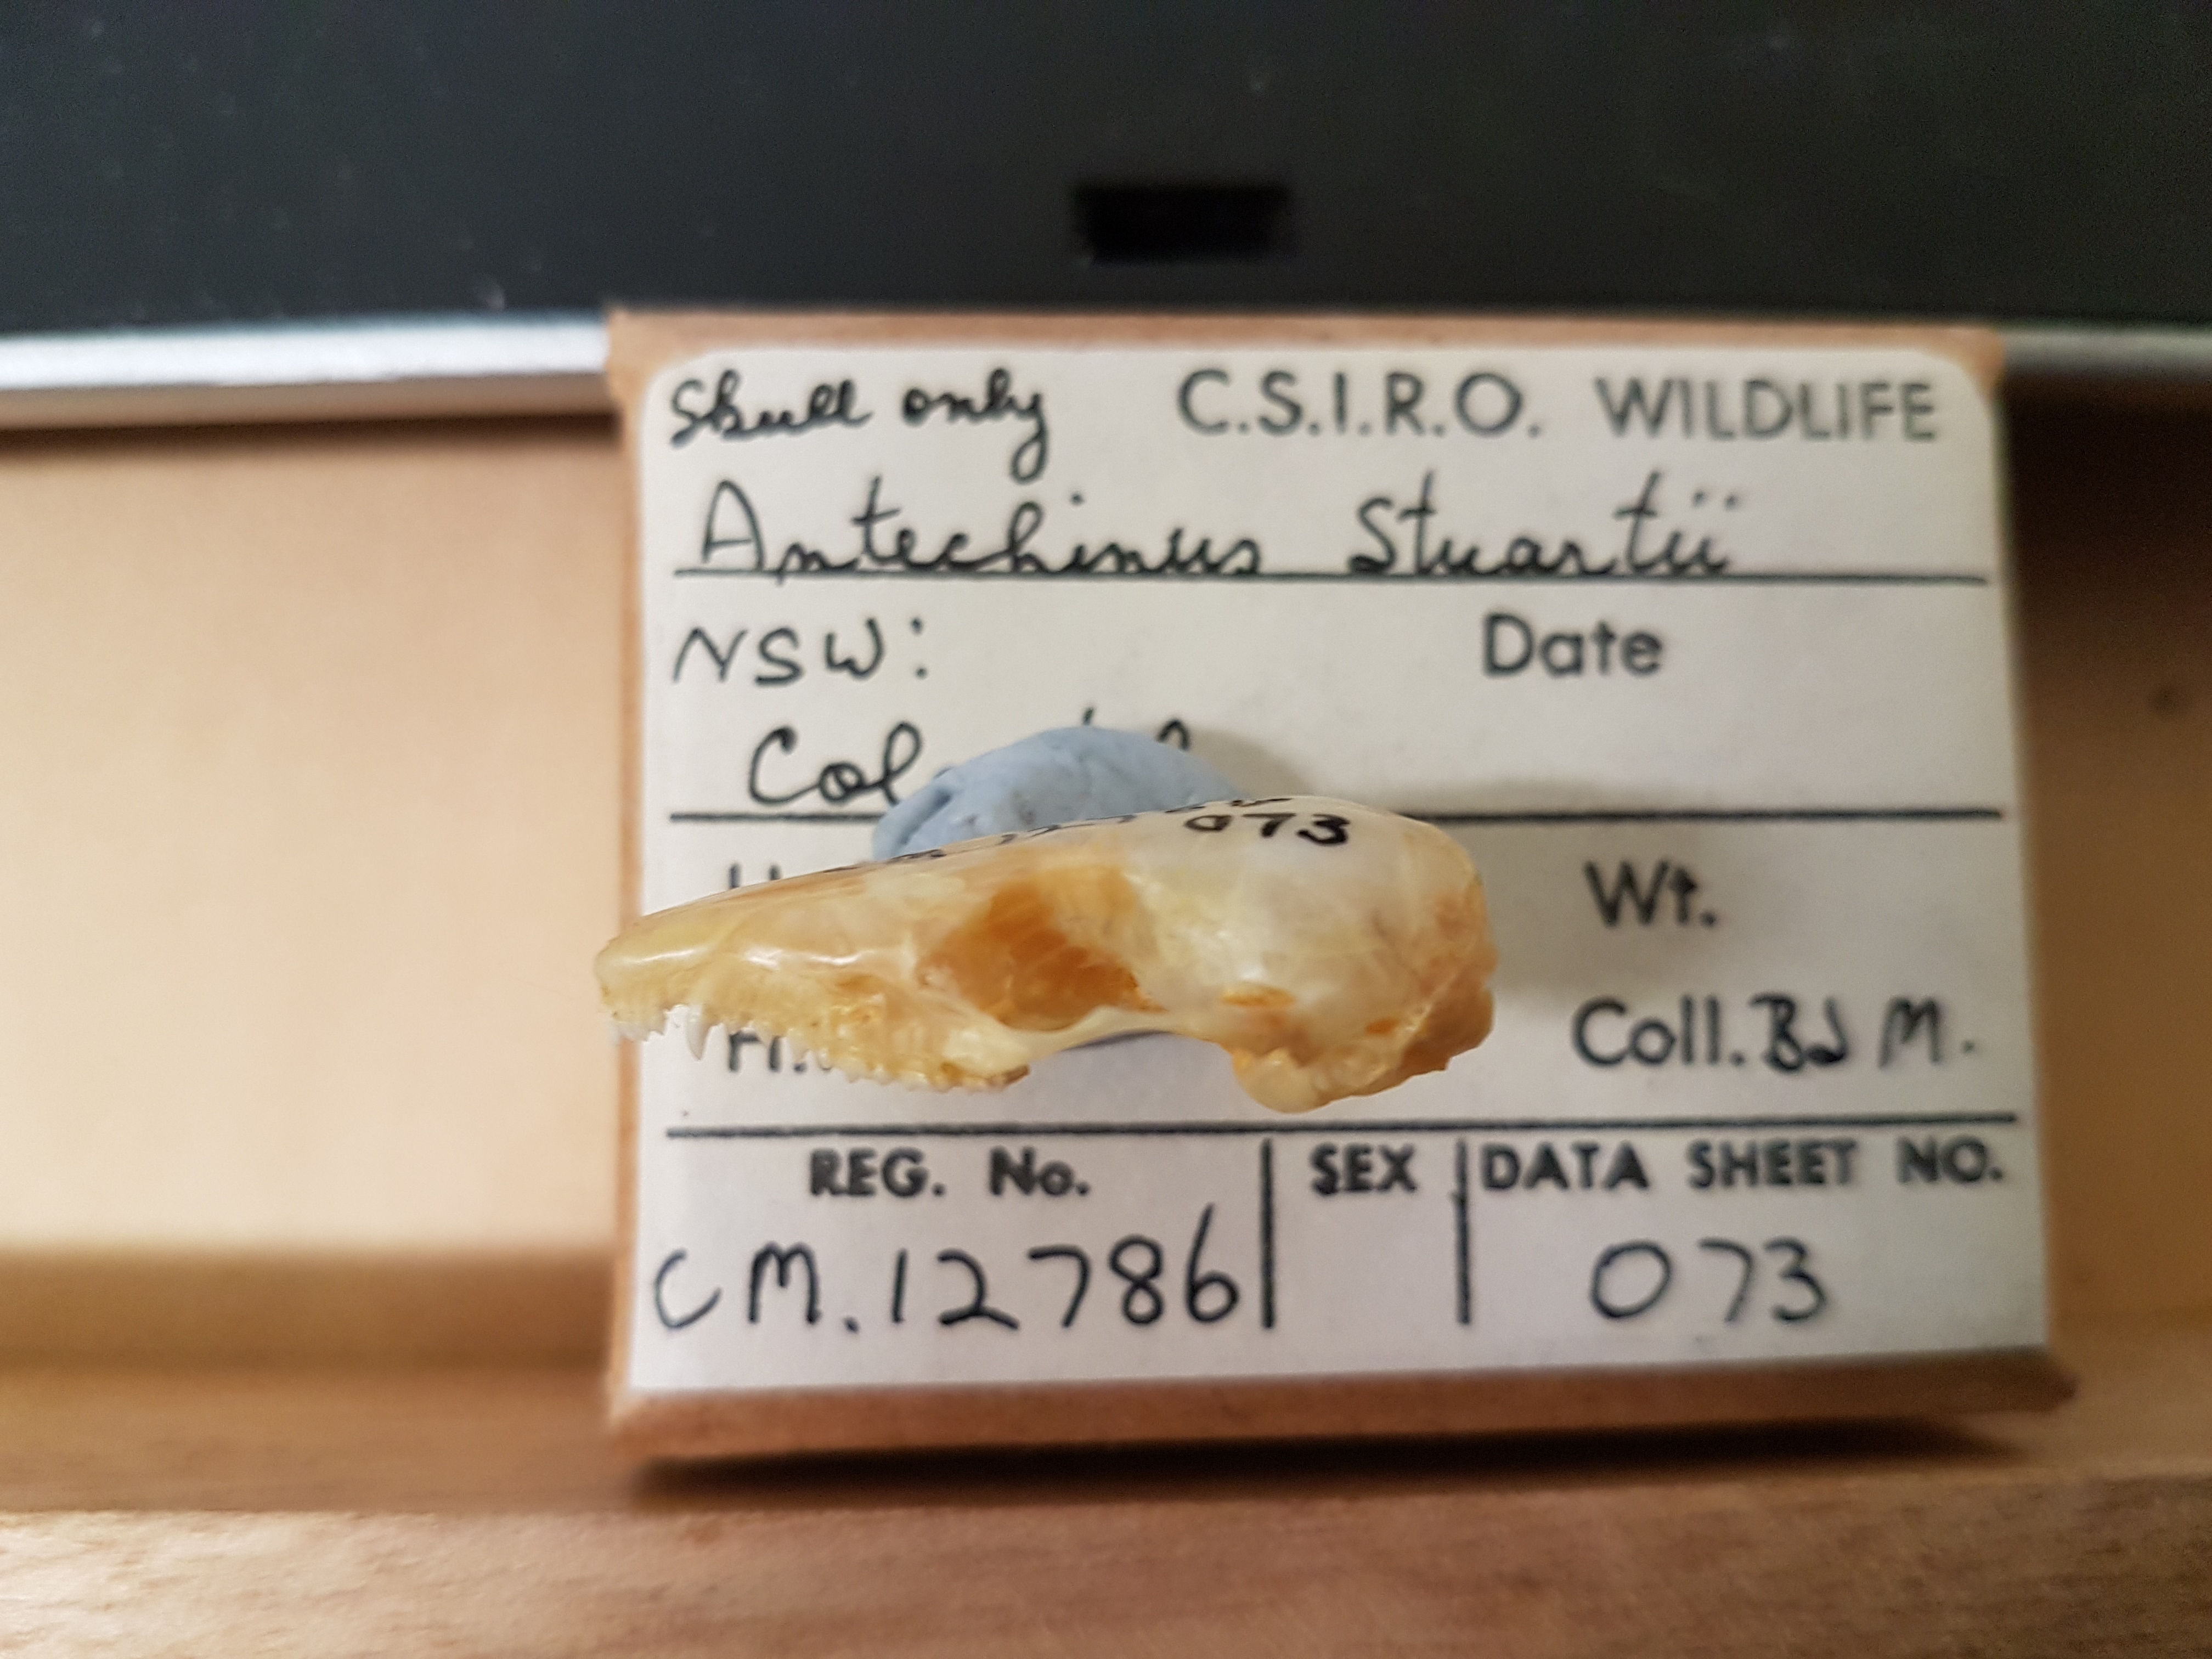 Skull only C.S.I.R.O. WILDLIFE
Antechinus Stuartii
NSW: Date
073
Wt.
Coll. BJ M.
REG. No. SEX DATA SHEET NO.
CM. 12786 073